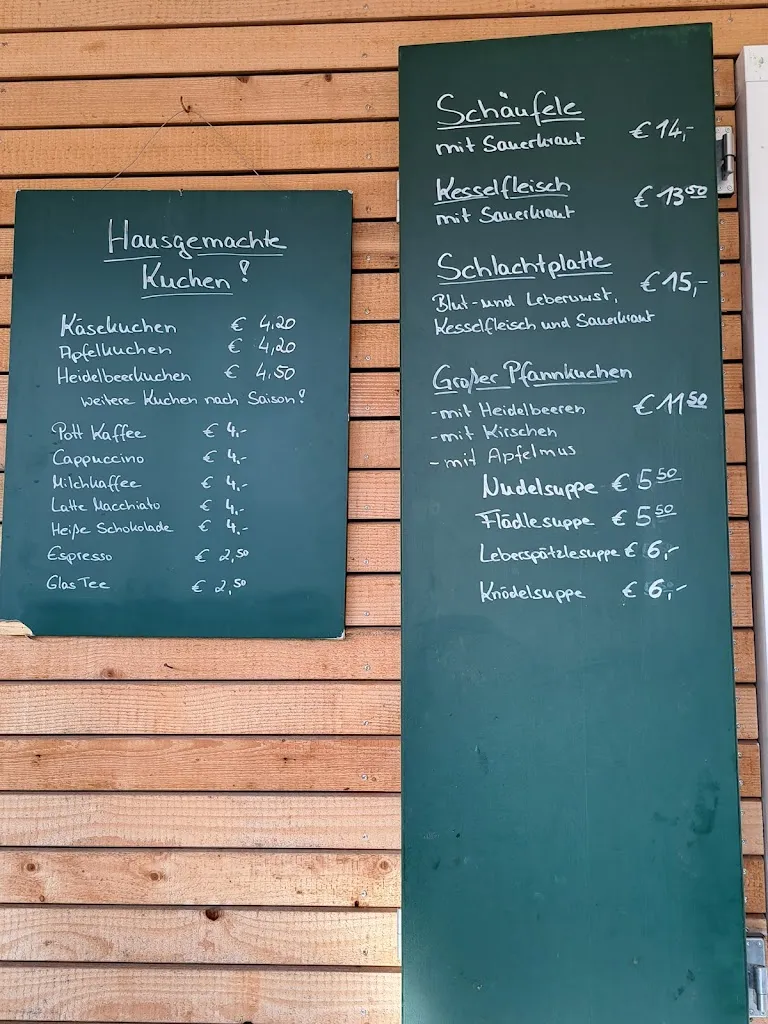 Hausgemachte
Kuchen!
Käsekuchen € 4,20
Apfelkuchen € 4,20
Heidelbeerkuchen € 4.50
weitere Kuchen nach Saison!
Pott Kaffee € 4,-
Cappuccino € 4,-
Milchkaffee € 4,-
Latte Macchiato € 4,-
Heiße Schokolade € 4,-
Espresso € 2,50
Glas Tee € 2,50
Schäufele
mit Sauerkraut € 14,-
Kesselfleisch
mit Sauerkraut € 13 50
Schlachtplatte € 15,-
Blut- und Leberwurst,
Kesselfleisch und Sauerkraut
Großer Pfannkuchen
- mit Heidelbeeren € 11 50
- mit Kirschen
- mit Apfelmus
Nudelsuppe € 5 50
Flädlesuppe € 5 50
Leberspätzlesuppe € 6,-
Knödelsuppe € 6,-